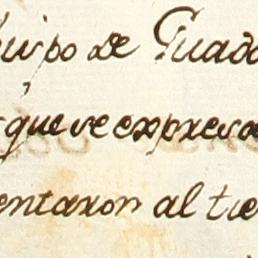 uispo de Guada
que se expresa
entaron al tie